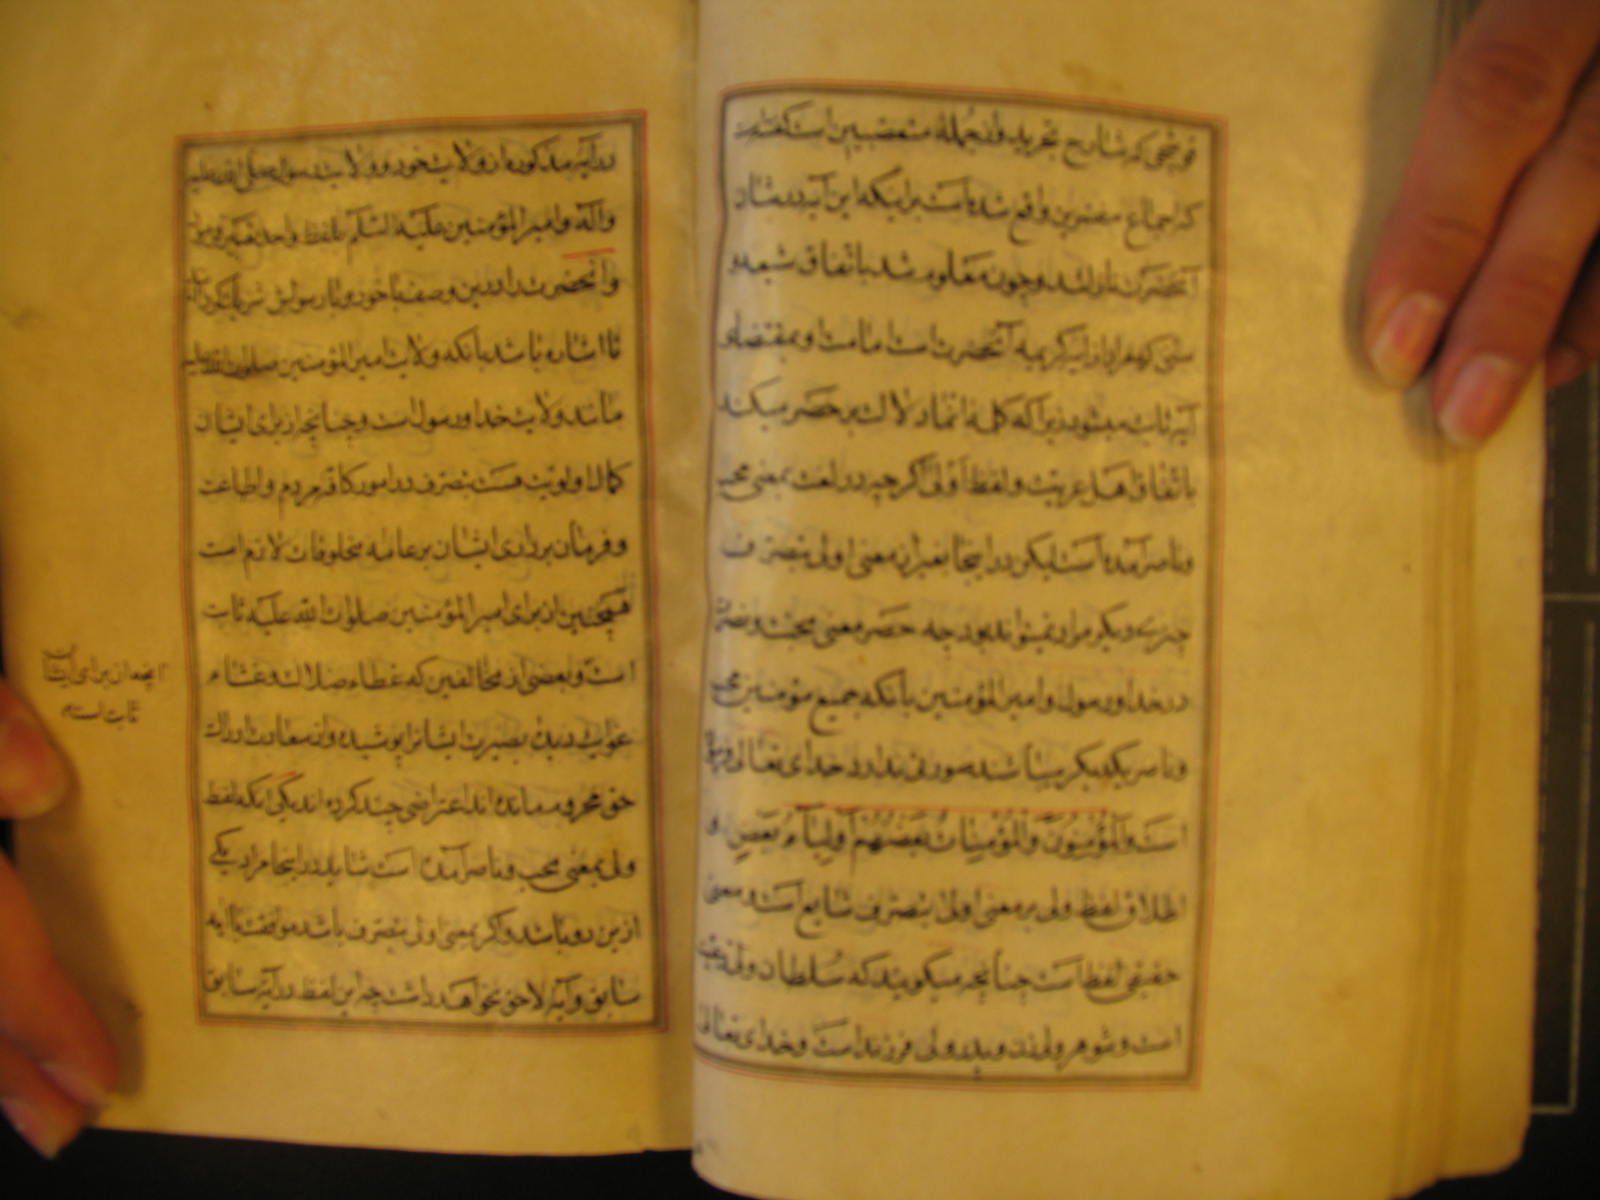 قوشجی که شارح تجرید و از جملهٔ متعصبین است گفته است
که اجماع مفسرین واقع شده است بر اینکه این آیه در شان
آنحضرت نازل شد و چون معلوم شد باتفاق شیعه و
سنی که مراد از آیه کریمه آنحضرت است امامت او بمقتضای
آیه ثابت میشود زیرا که کلمهٔ انما دلالت بر حصر میکند
باتفاق اهل عربیت و لفظ اولی اگر چه در لغت بمعنی محب
و ناصر آمده است لیکن در اینجا بغیر از معنی اولی بتصرف
چیزی دیگر مراد نمیتواند بود چه حصر معنی محبت و نصرت
در خدا و رسول و امیر المؤمنین بآنکه جمیع مؤمنین محب
و ناصر یکدیگر میباشند صورتی ندارد خدای تعالی فرموده
است وَالْمُؤْمِنُونَ وَالْمُؤْمِنَاتُ بَعْضُهُمْ أَوْلِيَآءُ بَعْضٍ و
اطلاق لفظ ولی بر معنی اولی بتصرف شایع است و معنی
حقیقی لفظ است چنانچه میگویند که سُلطان ولی رعیت
است و شوهر ولی زن و پدر ولی فرزند است و خدای تعالی
در آیه مذکوره از ولایت خود و ولایت رسول صلی الله علیه
و آله و امیر المؤمنین علیه السلام بلفظ واحد تعبیر فرموده
و آنحضرت را در این وصف با خود و با رسولش شریک گردانیده
تا اشاره باشد بآنکه ولایت امیر المؤمنین صلوات الله علیه
مانند ولایت خدا و رسول است و چنانچه از برای ایشان
کمال اولویت هست بتصرف در امور کافه مردم و اطاعت
و فرمان برداری ایشان بر عامه مخلوقات لازم است
همچنین از برای امیر المؤمنین صلوات الله علیه ثابت
است و بعضی از مخالفین که غطاء ضلالت و غشاء
غوایت دیدهٔ بصیرت ایشانرا پوشیده و از سعادت ادراک
حق محروم مانده اند اعتراضی چند کرده اند یکی آنکه لفظ
ولی بمعنی محب و ناصر آمده است شاید در اینجا مراد یکی
ازین دو باشد و اگر بمعنی اولی بتصرف باشد موافقت با آیه
سابق و آیه لاحق نخواهد داشت چه این لفظ در آیه سابق
اینجه از برای ایشان
ثابت است